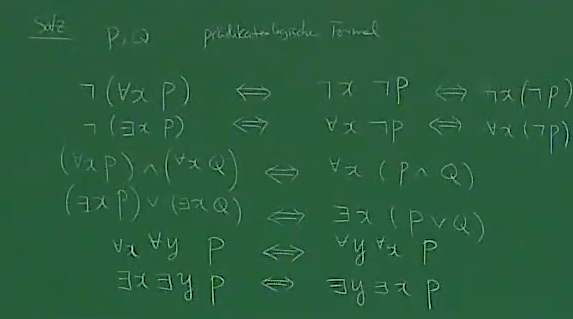 Satz P, Q prädikatenlogische Formel
¬(∀x P) ⇔ ∃x ¬P ⇔ ∃x(¬P)
¬(∃x P) ⇔ ∀x ¬P ⇔ ∀x(¬P)
(∀x P) ∧ (∀x Q) ⇔ ∀x (P ∧ Q)
(∃x P) ∨ (∃x Q) ⇔ ∃x (P ∨ Q)
∀x ∀y P ⇔ ∀y ∀x P
∃x ∃y P ⇔ ∃y ∃x P